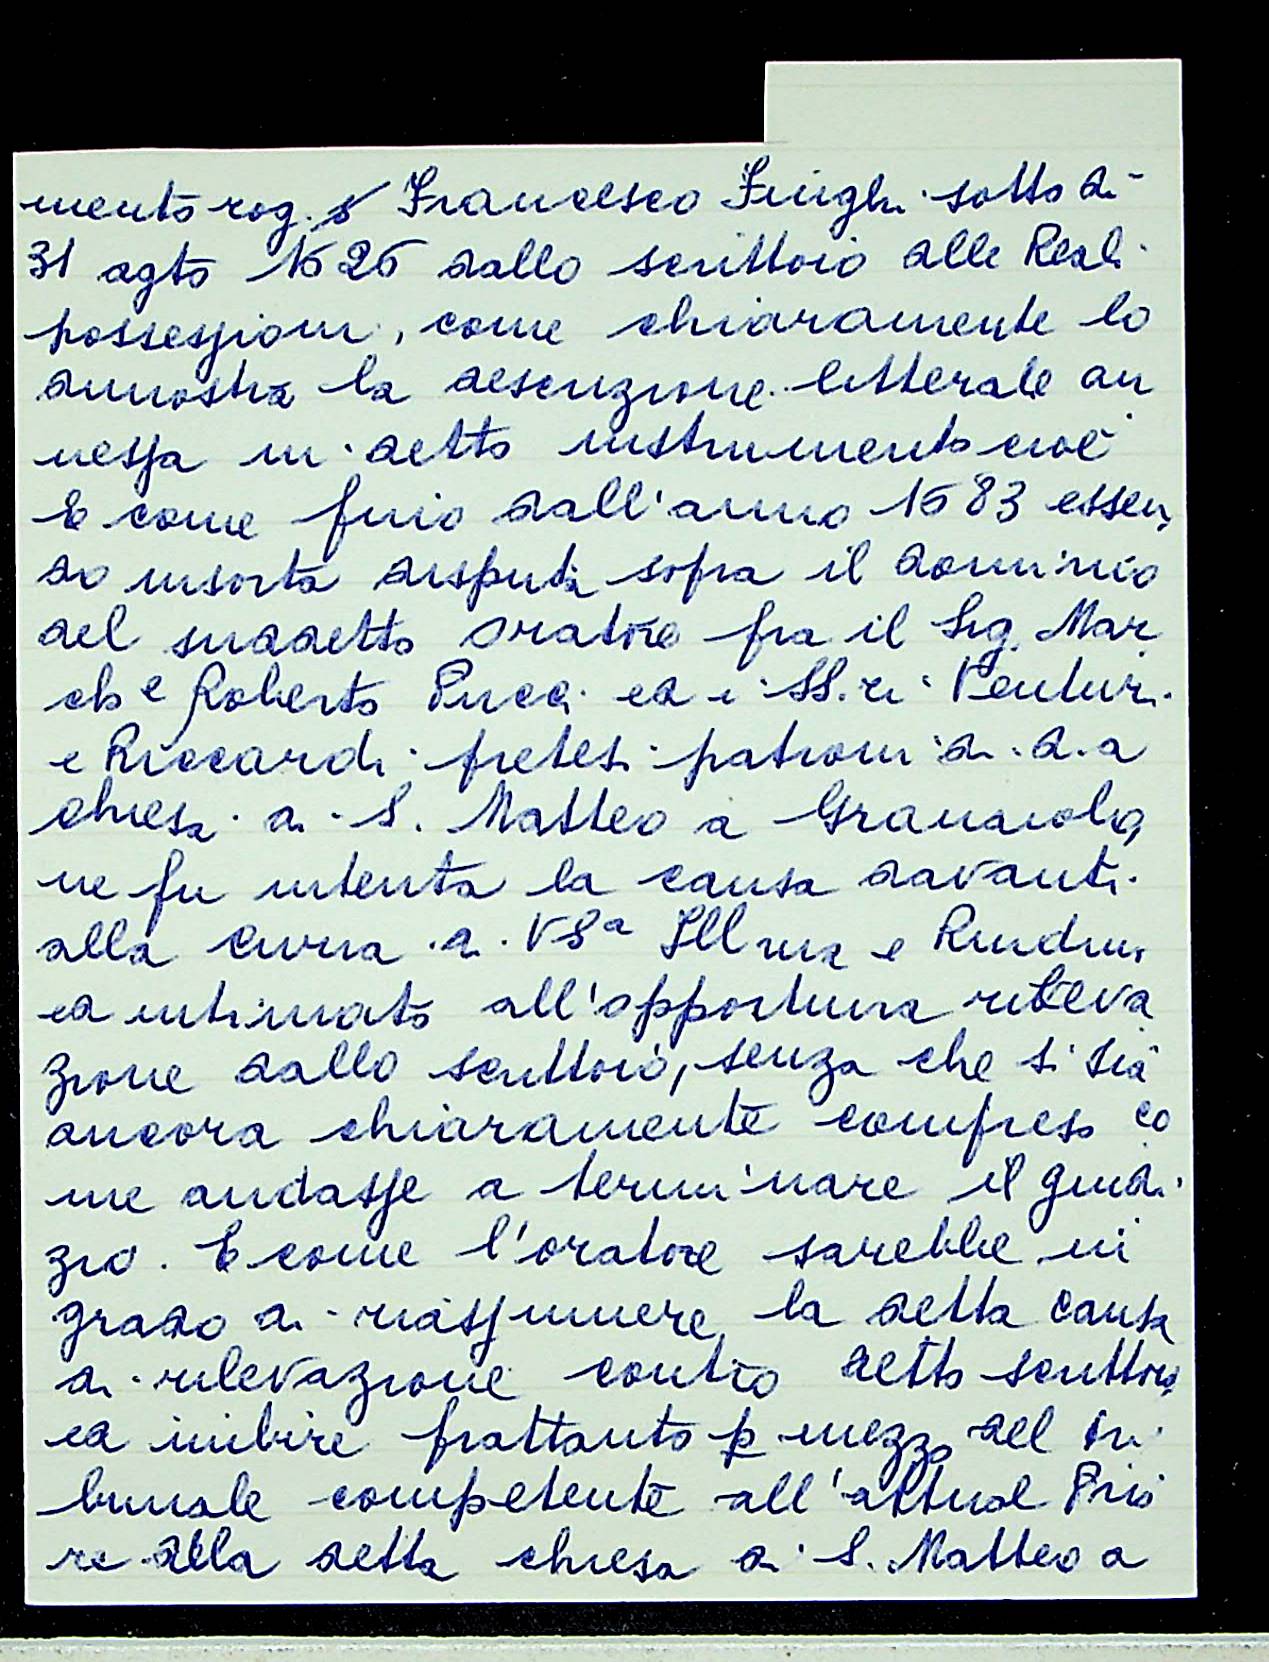 mento rog. s Francesco Giugni sotto di
31 agto 1626 dallo scrittoio delle Reali
possessioni, come chiaramente lo
dimostra la descrizione letterale an
nessa in detto instrumento cioè
E come fino dall'anno 1683 essen
do insorta disputa sopra il dominio
del suddetto oratorio fra il Sig. Mar
ch e Roberto Pucci ed i SS.ri Venturi
e Riccardi pretesi patroni di d.a
chiesa di S. Matteo a Granaiolo,
ne fu intenta la causa davanti
alla curia di VS a Ill ma e Rmdma
ed intimato all'opportuna rileva
zione dallo scrittoio, senza che si sia
ancora chiaramente compreso co
me andasse a terminare il giudi
zio. E come l'oratore sarebbe in
grado di riassumere la detta causa
di rilevazione contro detto scrittoio,
ed inibire frattanto p mezzo del tri
bunale competente all'attual Prio
re della detta chiesa di S. Matteo a